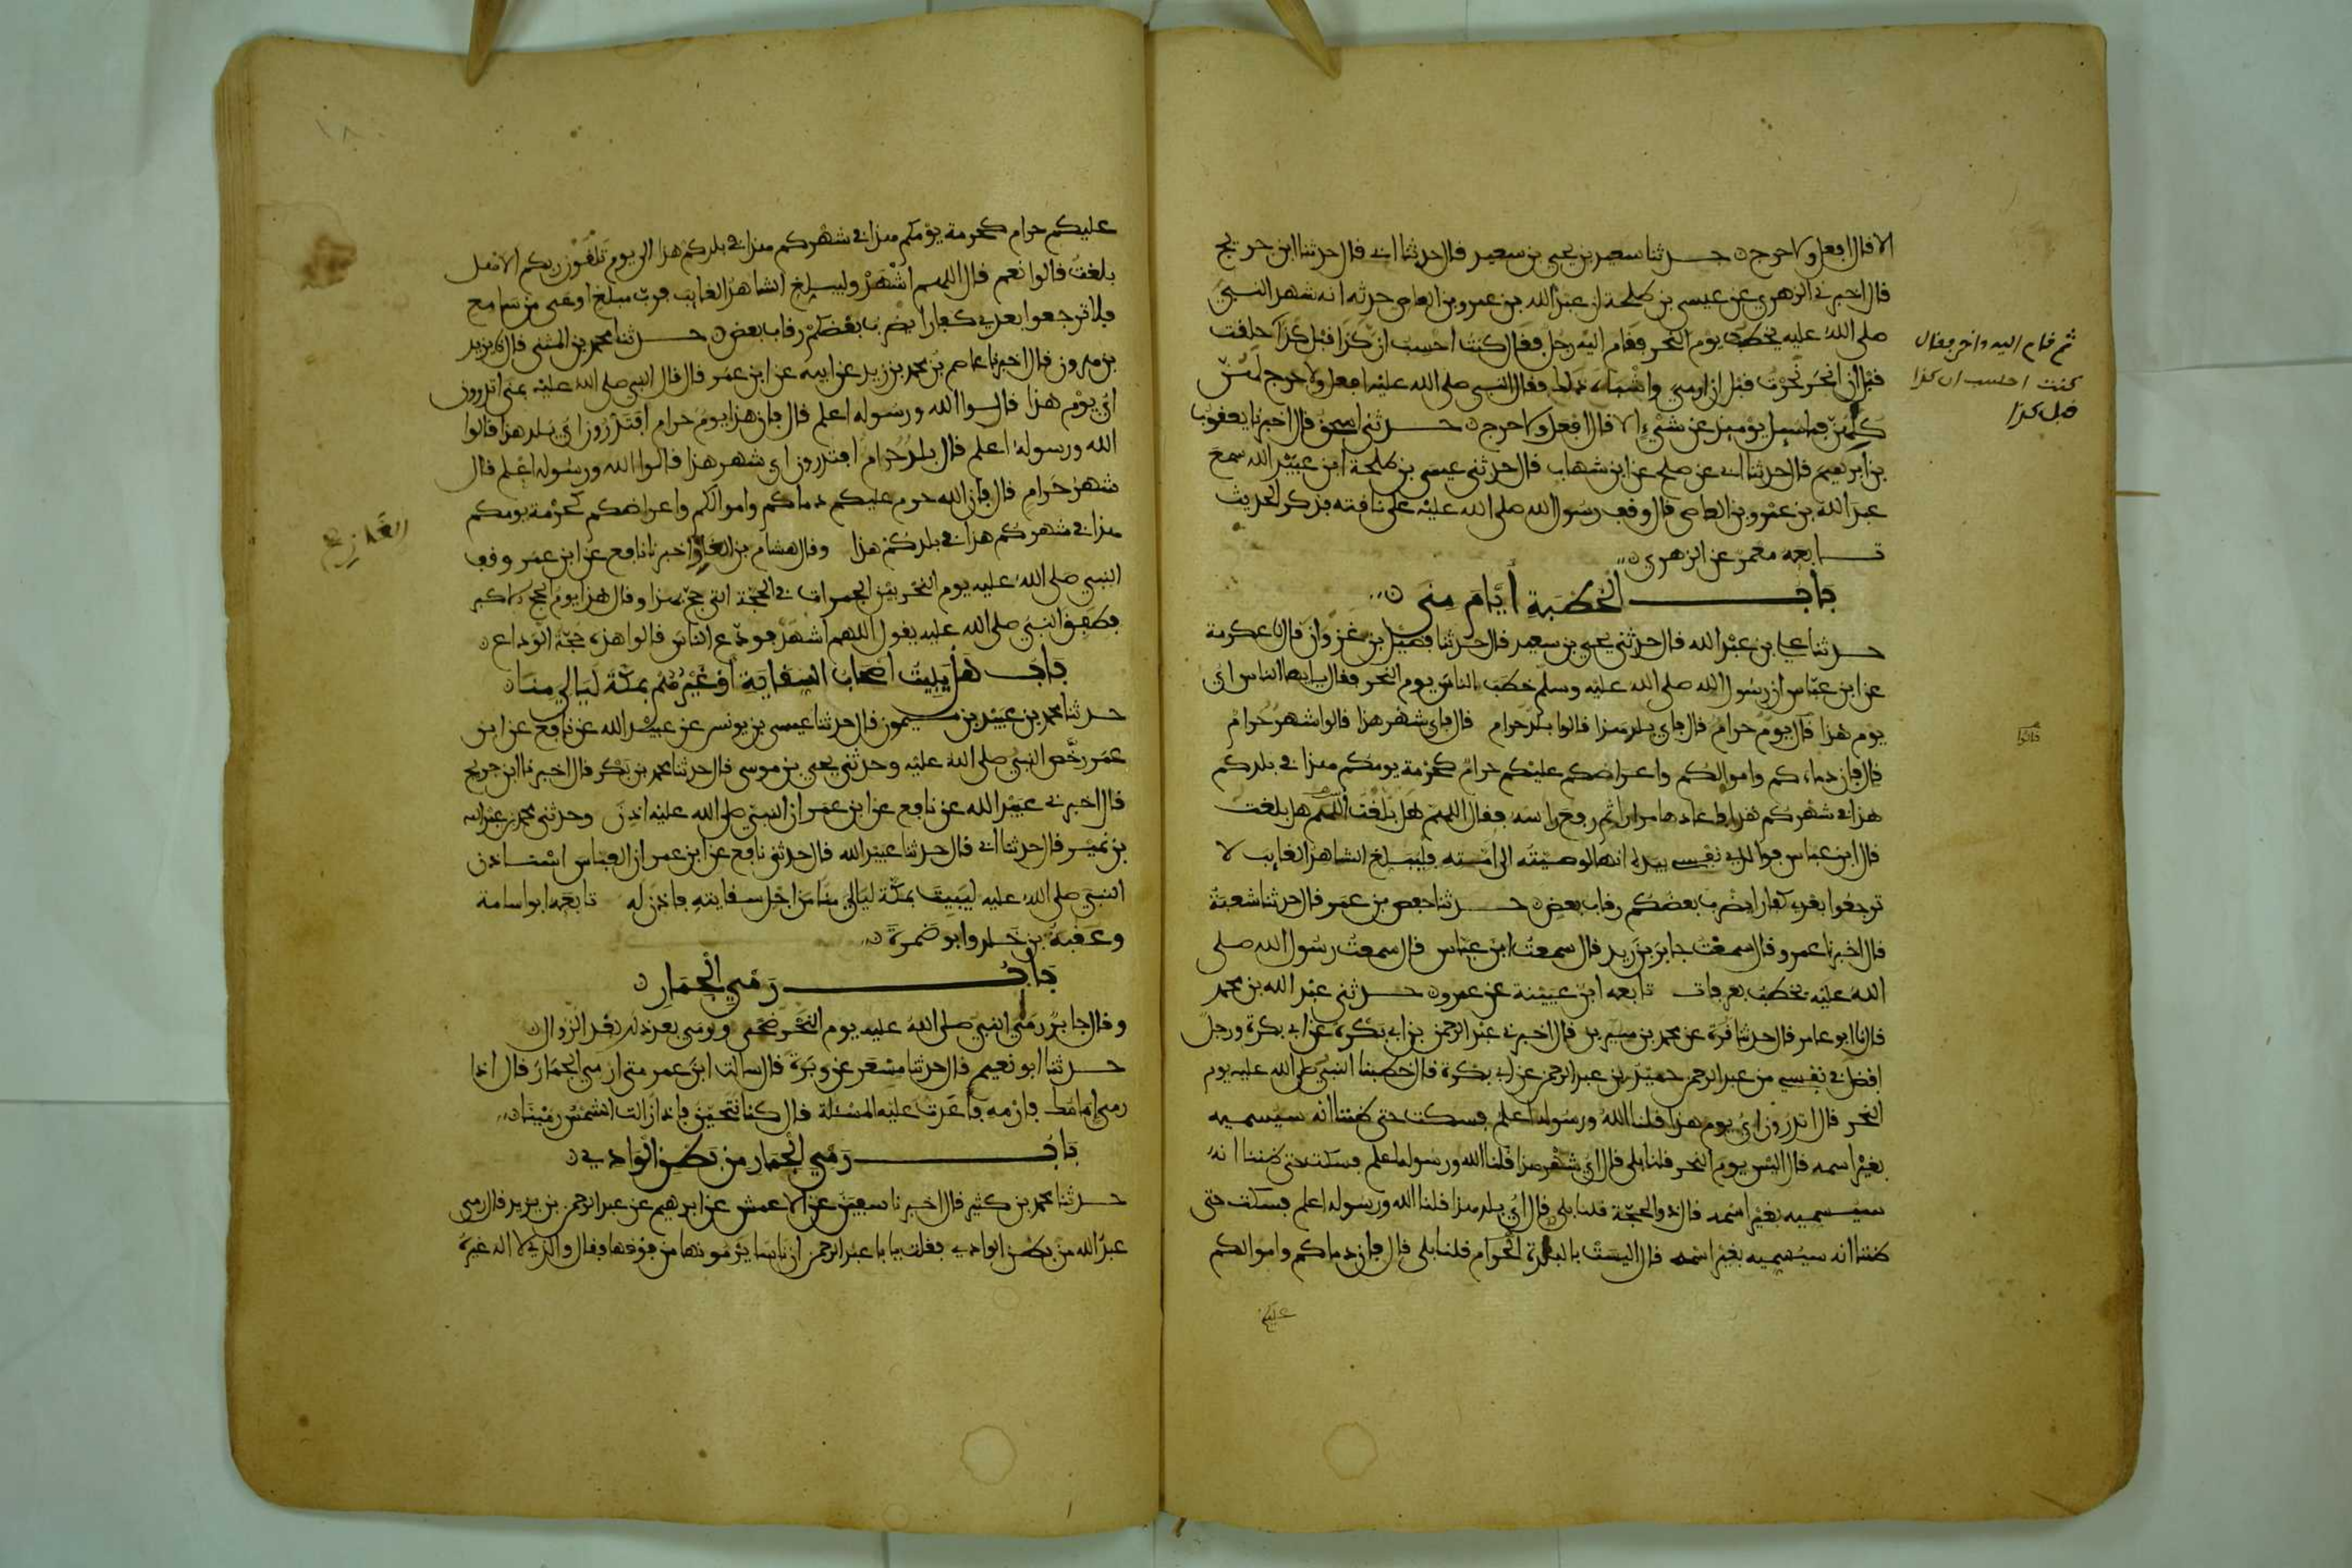 الا قال افعل ولا حرج حدثنا سعيد بن يحيى بن سعيد قال حدثنا ابي قال حدثنا ابن جريج
قال اخبرني الزهري عن عيسى بن طلحة ان عبد الله بن عمرو بن العاصي حدثه انه شهد النبي
صلى الله عليه يخطب يوم النحر فقام اليه رجل فقال كنت احسب ان كذا قبل كذا حلقت
قبل ان انحر نحرت قبل ان ارمي واشباه ذلك فقال النبي صلى الله عليه افعل ولا حرج لهن
كلهن فما سيل يومئذ عن شيء الا قال افعل ولا حرج حدثني اسحق قال اخبرنا يعقوب
بن ابرهيم قال حدثنا ابي عن صلح عن ابن شهاب قال حدثني عيسى بن طلحة ابن عبيد الله سمع
عبد الله بن عمرو بن العاصي قال وقف رسول الله صلى الله عليه على ناقته فذكر الحديث
تابعه معمر عن الزهري
باب الخطبة أيام منى
حدثنا علي بن عبد الله قال حدثني يحيى بن سعيد قال حدثنا فضيل بن غزوان قال نا عكرمة
عن ابن عباس ان رسول الله صلى الله عليه وسلم خطب الناس يوم النحر فقال يا ايها الناس اي
يوم هذا قال يوم حرام قال فاي بلد هذا قالوا بلد حرام قال فاي شهر هذا قالوا شهر حرام
قال فان دماءكم واموالكم واعراضكم عليكم حرام كحرمة يومكم هذا في بلدكم
هذا في شهركم هذا فاعادها مرارا ثم رفع راسه فقال اللهم هل بلغت اللهم هل بلغت
قال ابن عباس فوالذي نفسي بيده انها لوصيته الى امته فليبلغ الشاهد الغايب لا
ترجعوا بعدي كفارا يضرب بعضكم رقاب بعض حدثنا حفص بن عمر قال حدثنا شعبة
قال اخبرنا عمرو قال سمعت جابر بن زيد قال سمعت ابن عباس قال سمعت رسول الله صلى
الله عليه يخطب بعرفات تابعه ابن عيينة عن عمرو حدثني عبد الله بن محمد
قال نا ابو عامر قال حدثنا قرة عن محمد بن سيرين قال اخبرني عبد الرحمن بن ابي بكرة عن ابي بكرة ورجل
افضل في نفسي من عبد الرحمن حميد بن عبد الرحمن عن ابي بكرة قال خطبنا النبي صلى الله عليه يوم
النحر قال اتدرون اي يوم هذا قلنا الله ورسوله اعلم فسكت حتى ظننا انه سيسميه
بغير اسمه قال اليس يوم النحر قلنا بلى قال اي شهر هذا قلنا الله ورسوله اعلم فسكت حتى ظننا انه
سيسميه بغير اسمه قال ذو الحجة قلنا بلى قال اي بلد هذا قلنا الله ورسوله اعلم فسكت حتى
ظننا انه سيسميه بغير اسمه قال اليست بالبلدة الحرام قلنا بلى قال فان دماكم واموالكم
عليكم
ثم قام اليه اخر فقال
كنت احسب ان كذا
قبل كذا
قالوا
عليكم حرام كحرمة يومكم هذا في شهركم هذا في بلدكم هذا الى يوم تلقون ربكم الا هل
بلغت قالوا نعم قال اللهم اشهد وليبلغ الشاهد الغايب فرب مبلغ اوعى من سامع
فلا ترجعوا بعدي كفارا يضرب بعضكم رقاب بعض حدثنا محمد بن المثنى قال نا يزيد
بن هرون قال اخبرنا عاصم بن محمد بن زيد عن ابيه عن ابن عمر قال قال النبي صلى الله عليه بمنى اتدرون
اي يوم هذا قالوا الله ورسوله اعلم قال فان هذا يوم حرام افتدرون اي بلد هذا قالوا
الله ورسوله اعلم قال بلد حرام افتدرون اي شهر هذا قالوا الله ورسوله اعلم قال
شهر حرام قال فان الله حرم عليكم دماكم واموالكم واعراضكم كحرمة يومكم
هذا في شهركم هذا في بلدكم هذا وقال هشام بن الغاز اخبرنا نافع عن ابن عمر وقف
النبي صلى الله عليه يوم النحر بين الجمرات في الحجة التي حج بهذا وقال هذا يوم الحج الاكبر
فطفق النبي صلى الله عليه يقول اللهم اشهد فودع الناس فقالوا هذه حجة الوداع
باب هل يبيت اصحاب السقاية أو غيرهم بمكة ليالي منا
حدثنا محمد بن عبيد بن ميمون قال حدثنا عيسى بن يونس عن عبيد الله عن نافع عن ابن
عمر رخص النبي صلى الله عليه وحدثني يحيى بن موسى قال حدثنا محمد بن بكر قال اخبرنا ابن جريج
قال اخبرني عبيد الله عن نافع عن ابن عمر ان النبي صلى الله عليه اذن وحدثني محمد بن عبد الله
بن نمير قال حدثنا ابي قال حدثنا عبيد الله قال حدثني نافع عن ابن عمر ان العباس استاذن
النبي صلى الله عليه ليبيت بمكة ليالي منا من اجل سقايته فاذن له تابعه ابو اسامة
وعقبة بن خلد وابو ضمرة
باب رمي الجمار
وقال جابر رمى النبي صلى الله عليه يوم النحر ضحى ورمى بعد ذلك بعد الزوال
حدثنا ابو نعيم قال حدثنا مسعر عن وبرة قال سالت ابن عمر متى ارمي الجمار قال اذا
رمى امامك فارمه فاعدت عليه المسئلة قال كنا نتحين فاذا زالت الشمس رمينا
باب رمي الجمار من بطن الوادي
حدثنا محمد بن كثير قال اخبرنا سفين عن الاعمش عن ابرهيم عن عبد الرحمن بن يزيد قال رمى
عبد الله من بطن الوادي فقلت يا با عبد الرحمن ان ناسا يرمونها من فوقها فقال والذي لا اله غيره
الغاز
١٨٠